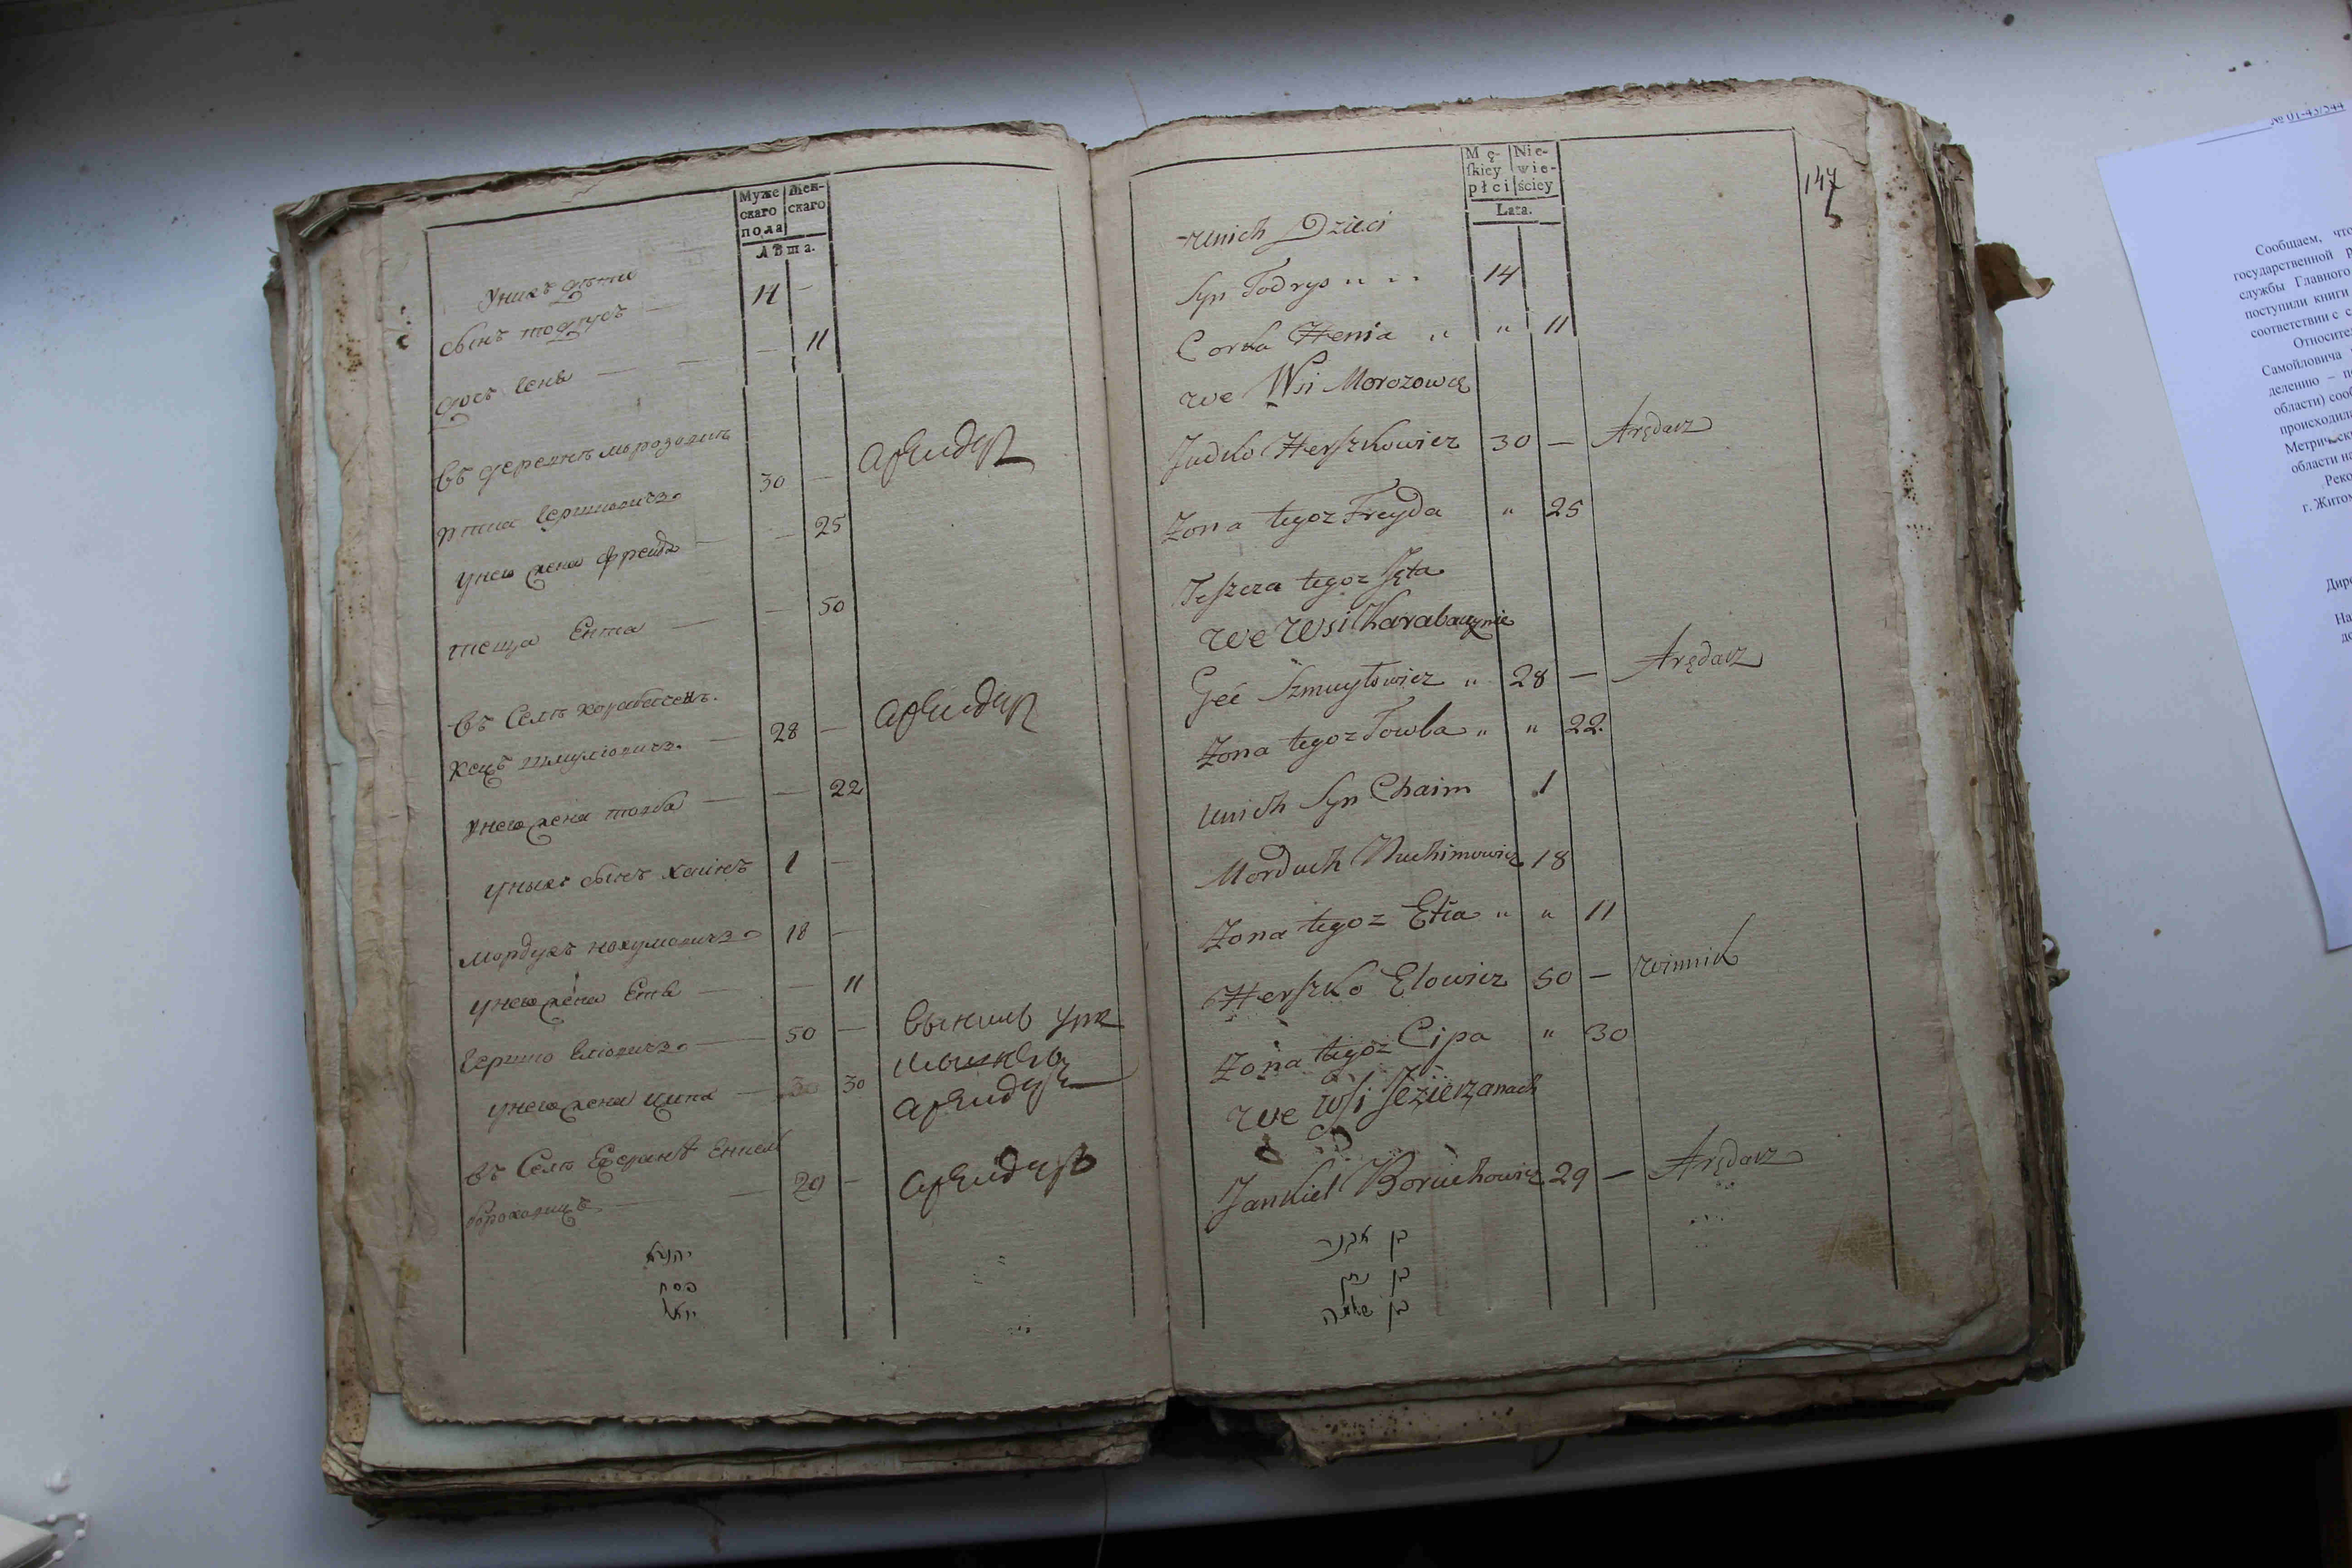 Муже
скаго
пола
Жен-
скаго
Лѣта.
Унихъ дѣти
сынъ тодрусъ 14 —
дочь геня — — — 11
въ деревнѣ морозовки
гершковичъ 30 — арендарь
унего жена фрейда — — 25
теща Ента — — 50
въ Селѣ
шмулiовичъ — 28 — арендарь
унего жена товба — — 22
унихъ сынъ хаимъ 1 —
Мордухъ нахумовичъ 18 —
унего жена Етя — — 11
гершко Елiовичъ — 50 —
унего жена ципа — 30
арендарь
въ Селѣ
бороховичъ — — 29 — арендарь
פסח
Mę-
ſkiey
płci
Nie-
wie-
ściey
Lata.
147
unich Dzieci
Syn Todrys " " 14
Corka Henia " " 11
we Wsi Morozowce
Judko Herszkowicz 30 — Arędarz
Zona tegoz Freyda " 25
Teszcza tegoz
we Wsi Karabaczynie
Szmuylowicz " 28 — Arędarz
Zona tegoz Towba " " 22.
unich Syn Chaim 1
Morduch Nuchimowicz 18
Zona tegoz Etia " " 11
Herszko Elowicz 50 — Winnik
Zona tegoz Cipa " 30
we Wsi Jezierzanach
Jankiel Boruchowicz 29 — Arędarz
בן אבנר
בן נתן
בן שלמה
№ 01-43/544
Сообщаем, что
государственной
службы Главного
поступили книги
соответствии с
Самойловича
делению –
области)
области на
г.